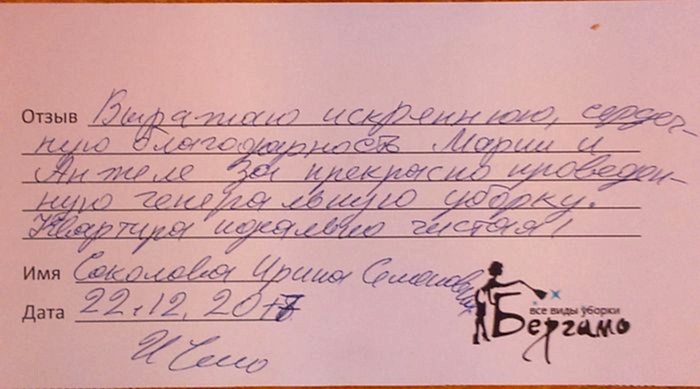 Отзыв Выражаю искреннюю, сердеч-
ную благодарность Марии и
Анжеле за прекрасно проведен-
ную генеральную уборку.
Квартира идеально чистая!
Имя Соколова Ирина Семеновна
Дата 22.12.2017
все виды уборки
Бергамо